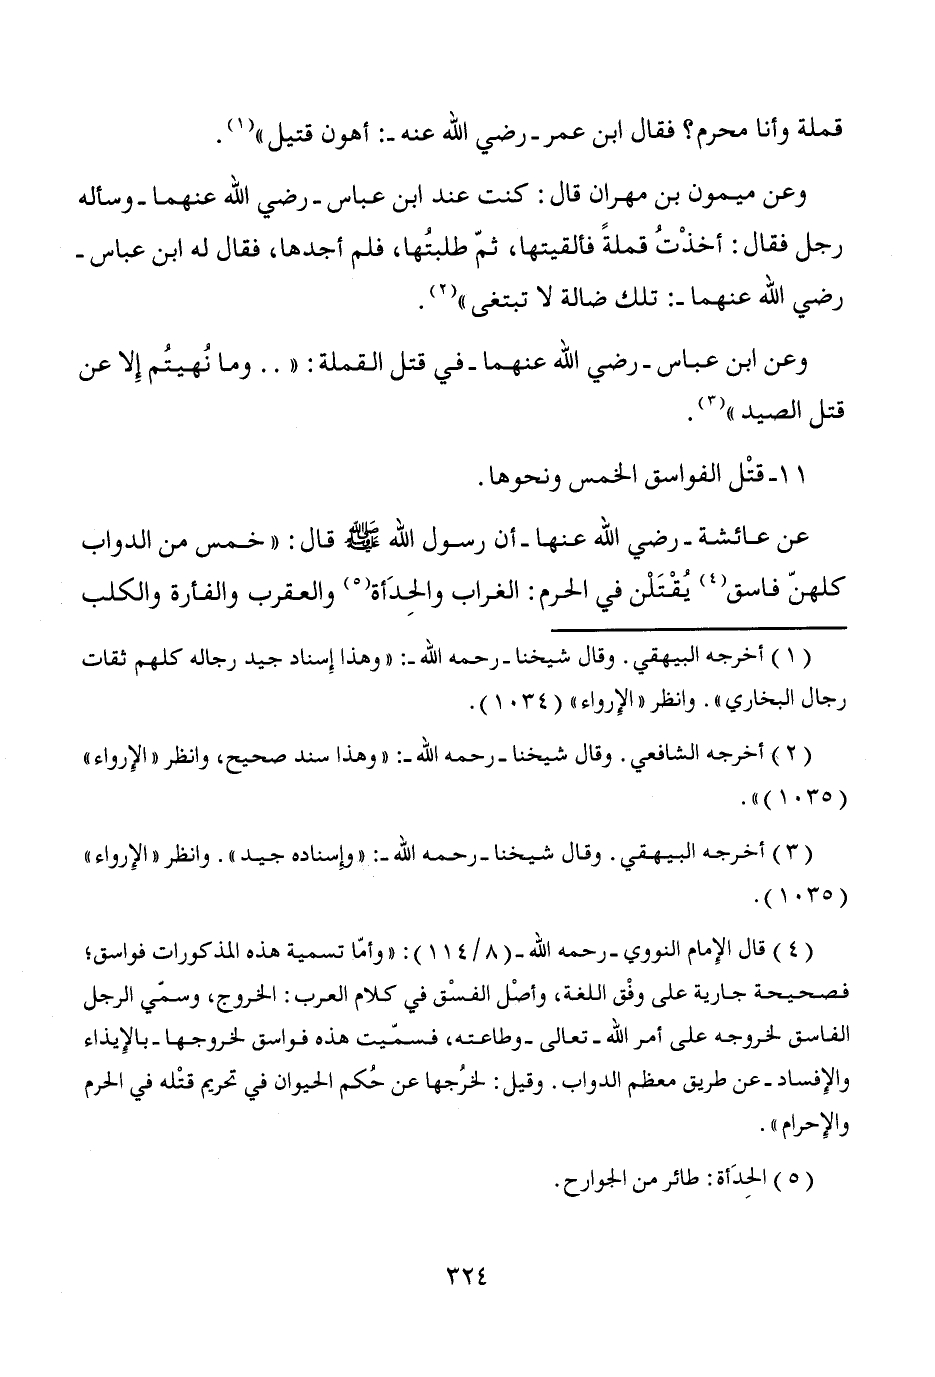 قملة وأنا محرم؟ فقال ابن عمر ـ رضي الله عنه ـ: أهون قتيل»(١).
وعن ميمون بن مهران قال: كنت عند ابن عباس ـ رضي الله عنهما ـ وسأله
رجل فقال: أخذْتُ قملةً فألقيتها، ثمّ طلبتُها، فلم أجدها، فقال له ابن عباس ـ
رضي الله عنهما ـ: تلك ضالة لا تبتغى»(٢).
وعن ابن عباس ـ رضي الله عنهما ـ في قتل القملة: «.. وما نُهيتُم إِلا عن
قتل الصيد»(٣).
١١ـ قتْل الفواسق الخمس ونحوها.
عن عائشة ـ رضي الله عنها ـ أن رسول الله ﷺ قال: «خمس من الدواب
كلهنّ فاسق(٤) يُقْتَلْن في الحرم: الغراب والحِدَأة(٥) والعقرب والفأرة والكلب
(١) أخرجه البيهقي. وقال شيخنا ـ رحمه الله ـ: «وهذا إِسناد جيد رجاله كلهم ثقات
رجال البخاري». وانظر «الإِرواء» (١٠٣٤).
(٢) أخرجه الشافعي. وقال شيخنا ـ رحمه الله ـ: «وهذا سند صحيح، وانظر «الإِرواء»
(١٠٣٥)».
(٣) أخرجه البيهقي. وقال شيخنا ـ رحمه الله ـ: «وإِسناده جيد». وانظر «الإِرواء»
(١٠٣٥).
(٤) قال الإِمام النووي ـ رحمه الله ـ (٨/١١٤): «وأمّا تسمية هذه المذكورات فواسق؛
فصحيحة جارية على وفْق اللغة، وأصْل الفسْق في كلام العرب: الخروج، وسمّي الرجل
الفاسق لخروجه على أمر الله ـ تعالى ـ وطاعته، فسمّيت هذه فواسق لخروجها ـ بالإِيذاء
والإِفساد ـ عن طريق معظم الدواب. وقيل: لخرُجها عن حُكم الحيوان في تحريم قتْله في الحرم
والإِحرام».
(٥) الحِدَأة: طائر من الجوارح.
٣٢٤